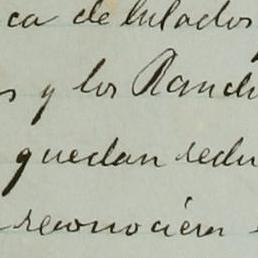 ca de Estados
s y los Ranch
quedan redu
reconocien